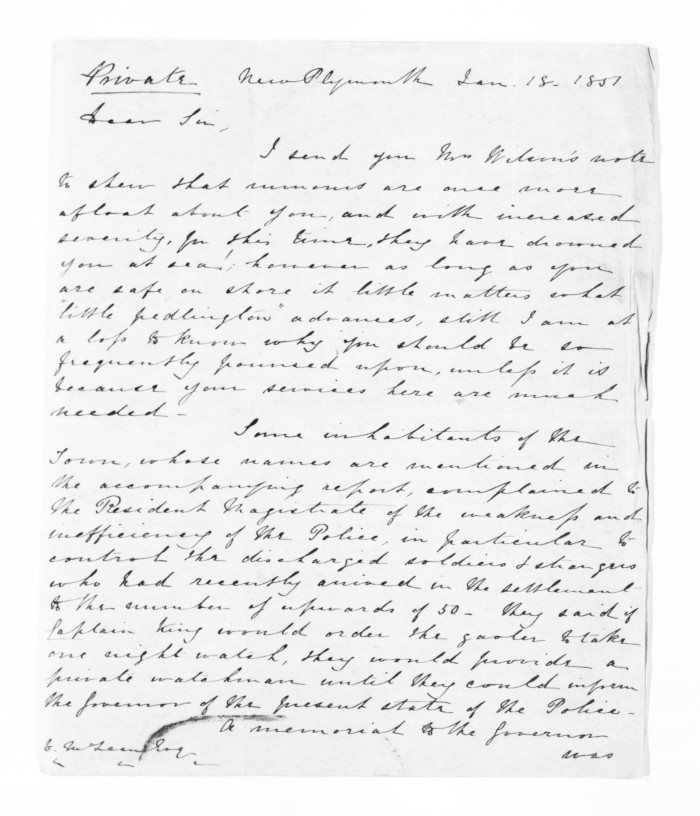 Private New Plymouth Jan. 18. 1851
Dear Sir,
I send you Mrs Wilson's note
to shew that rumours are once more
afloat about you, and with increased
severity, for this time, they have drowned
you at sea!; however as long as you
are safe on shore it little matters what
"little pedlington" advances, still I am at
a loss to know why you should be so
frequently pounced upon, unless it is
because your services here are much
needed -
Some inhabitants of the
Town, whose names are mentioned in
the accompanying report, complained to
the Resident Magistrate of the weakness and
inefficiency of the Police, in particular to
control the discharged soldiers & strangers
who had recently arrived in the settlement
to the number of upwards of 50 - they said if
Captain King would order the gaoler to take
one night watch, they would provide a
private watchman until they could inform
the Governor of the present state of the Police -
A memorial to the Governor
was
D. McLean Esq